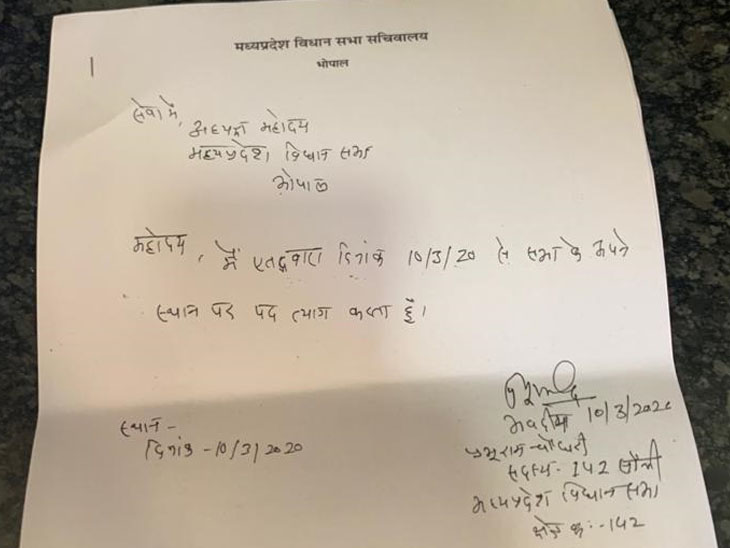 मध्यप्रदेश विधान सभा सचिवालय
भोपाल
सेवा में,
अध्यक्ष महोदय
मध्यप्रदेश विधान सभा
भोपाल
महोदय, मैं एतद्द्वारा दिनांक 10/3/20 से सभा के अपने
स्थान पर पद त्याग करता हूँ।
भवदीय 10/3/2020
स्थान -
दिनांक - 10/3/2020
प्रभुराम चौधरी
सदस्य - 142 साँची
मध्यप्रदेश विधान सभा
क्षेत्र क्र :- 142